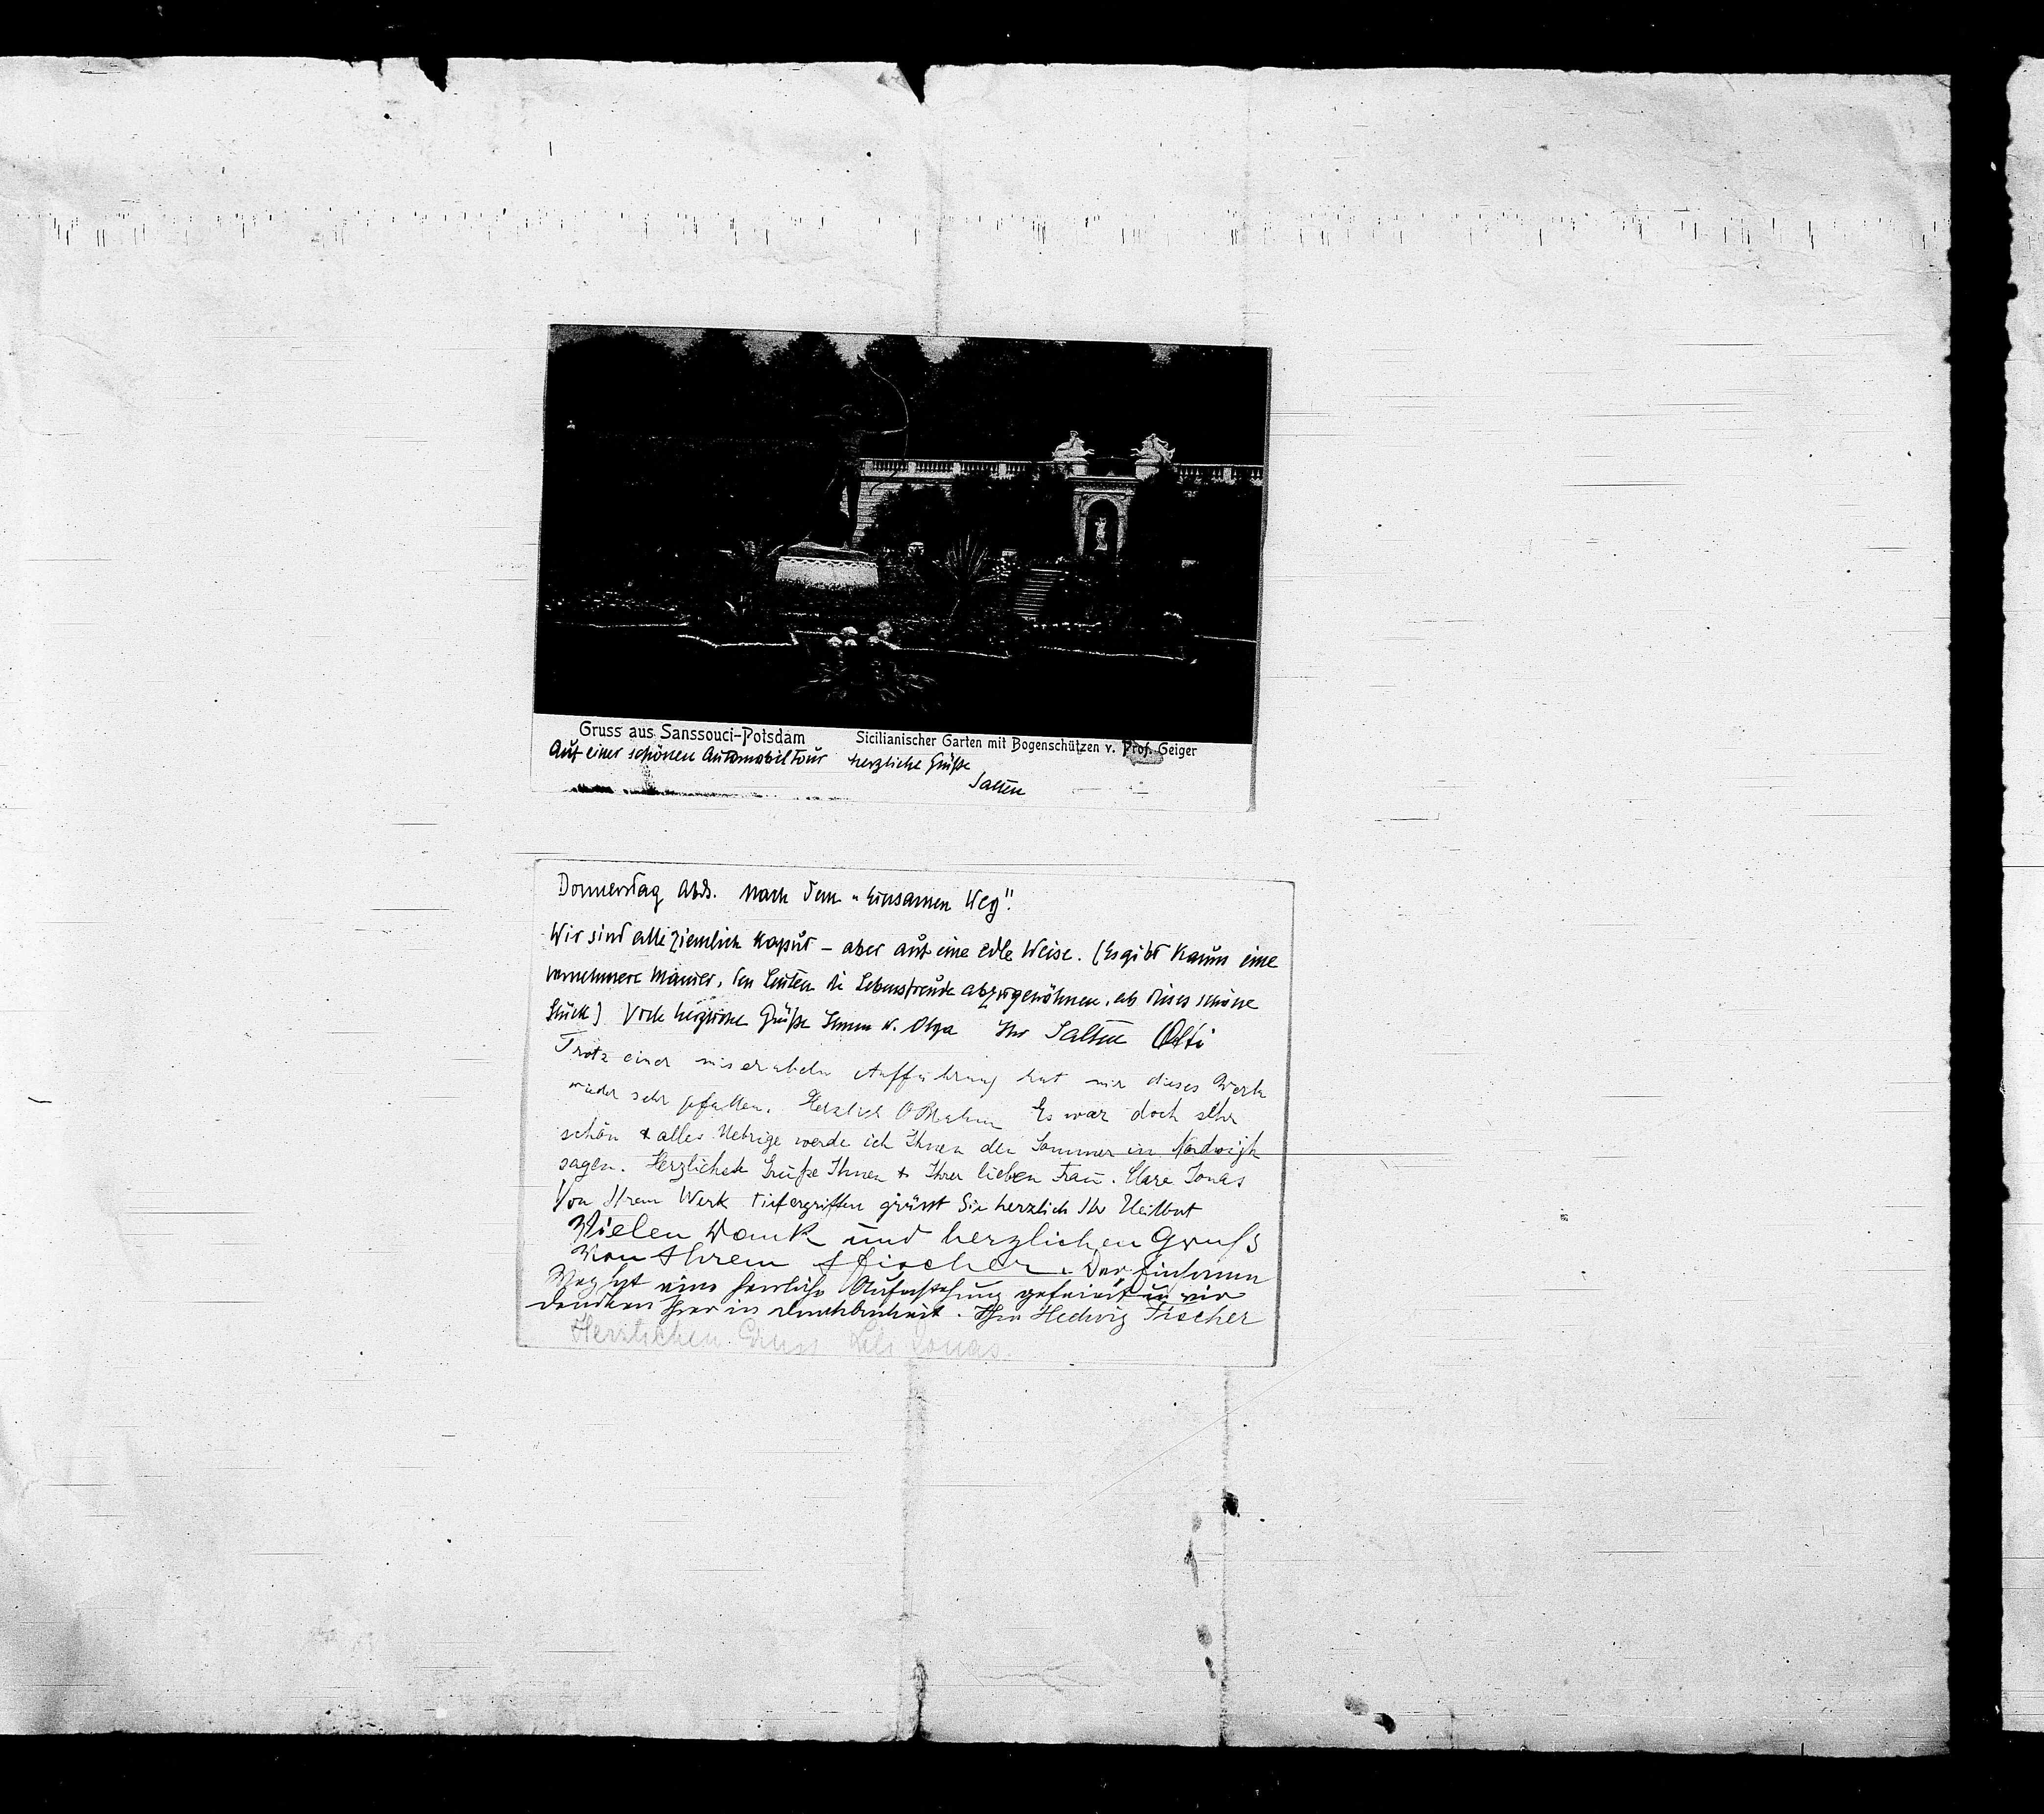 Gruss aus Sanssouci-Potsdam Sicilianischer Garten mit Bogenschützen v. Prof. Geiger
Auf einer schönen Automobiltour herzliche Grüße
Salten
Donnerstag Abds. nach dem „Einsamen Weg".
Wir sind alle ziemlich kaput – aber auf eine edle Weise. (Es gibt kaum eine
vornehmere Manier, den Leuten die Lebensfreude abzugewöhnen, als dieses schöne
Stück) Viele herzliche Grüße Ihnen u. Olga Ihr Salten Otti
Trotz einer miserabeln Aufführung hat mir dieses Werk
wieder sehr gefallen. Herzlich OBrahm Es war doch sehr
schön & alles Uebrige werde ich Ihnen den Sommer in Nordwigk
sagen. Herzlichste Grüße Ihnen & Ihrer lieben Frau. Clara Jonas
Von Ihrem Werk tiefergriffen grüsst Sie herzlich Ihr Heilbut
Vielen Dank und herzlichen Gruß
von Ihrem SFischer. Der Einsame
Weg hat eine herrliche Auferstehung gefeiert u wir
denken Ihrer in Dankbarkeit. Ihre Hedwig Fischer
Herzlichen Gruss Lili Jonas.